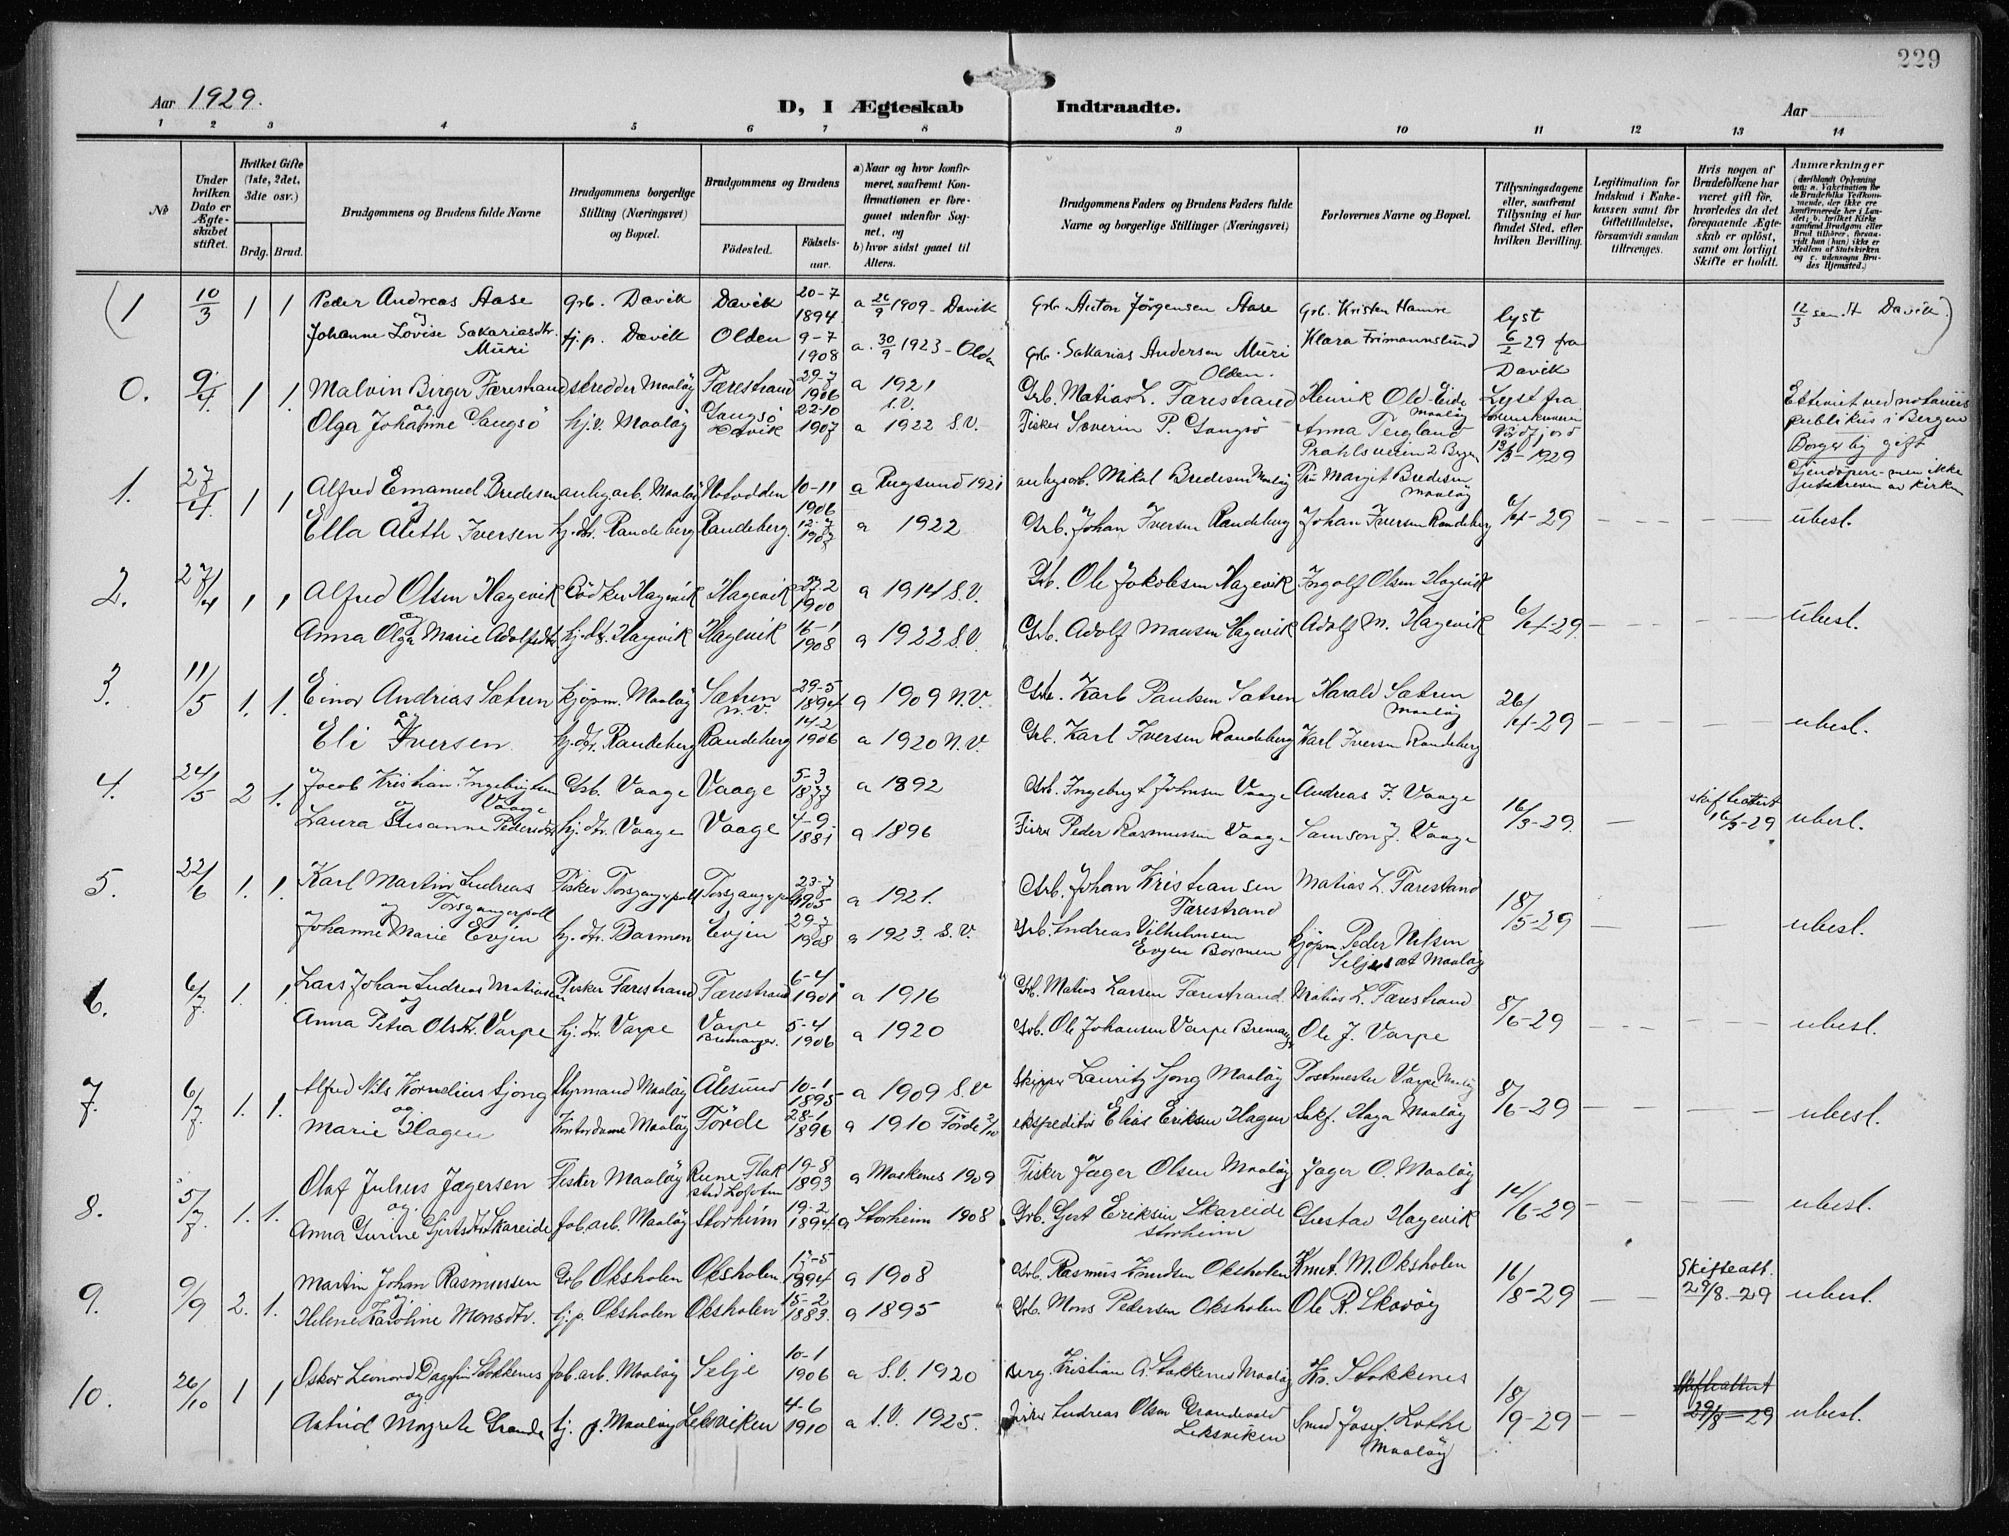 229
Aar 1929.
D, I Ægteskab Indtraadte.
Aar
1 2 3 4 5 6 7 8 9 10 11 12 13 14
No
Under hvilken Dato er Ægteskabet stiftet.
Hvilket Gifte (1ste, 2det, 3die osv.)
Brdg. Brud.
Brudgommens og Brudens fulde Navne
Brudgommens borgerlige Stilling (Næringsvei) og Bopæl.
Brudgommens og Brudens
Fødested.
Fødsels-aar.
a) Naar og hvor konfirmeret, saafremt Konfirmationen er foregaaet udenfor Sognet, og
b) hvor sidst gaaet til Alters.
Brudgommens Faders og Brudens Faders fulde Navne og borgerlige Stillinger (Næringsvei)
Forlovernes Navne og Bopæl.
Tillysningsdagene eller, saafremt Tillysning ei har fundet Sted, efter hvilken Bevilling.
Legitimation for Indskud i Enkekassen samt for Giftetilladelse, forsaavidt saadan tiltrænges.
Hvis nogen af Brudefolkene har været gift før, hvorledes da det foregaaende Ægteskab er opløst, samt om lovligt Skifte er holdt.
Anmærkninger
(1 10/3 1 1 Peder Andreas Aase Grb. Davik Davik 20-7 1894 a 26/9 1909 - Davik Grb. Anton Jørgensen Aase Grb. Kristen Hamre lyst 12/3 sen. H Davik.)
og
Johanne Lovise Sakariasdtr. Muri tj.p. Davik Olden 9-7 1908 a. 30/9 1923 - Olden Grb. Sakarias Andersen Muri Olden. Klara Frimannslund 6/2 29 fra Davik
0. 9/4. 1 1. Malvin Birger Færestrand skredder Maaløy Færestrand 29-7 1906 a 1921 S.V. Grb. Matias L. Færestrand Henrik Old-Eide Maaløy Lyst fra
og
Olga Johanne Gangsö hj.v. Maaløy Gangsö Davik 22-10 1907 a 1922 S.V. Fisker Severin P. Gangsö Anna Teigland Prahlsveien 2 Bergen 1929
publikus i Bergen
Borgerlig gift
1. 27/4. 1 1 Alfred Emanuel Bredesen anlegarb. Maaløy Notodden 10-11 1906 a Rugsund 1921 anlegsarb. Mikal Bredesen Maaløy Fru Margit Bredesen Maaløy
og
Ella Alette Iversen hj.dtr. Randeberg Randeberg. 12-7 1907 a 1922 Grb. Johan Iversen Randeberg Johan Iversen Randeberg 6/4-29 ubesl.
2. 27/4 1 1 Alfred Olsen Hagevik Bödker Hagevik Hagevik 27-2 1900 a 1914 S.V. Grb. Ole Jakobsen Hagevik Ingolf Olsen Hagevik
og
Anna Olga Marie Adolfsdtr. hj.dtr. Hagevik Hagevik 16-1 1908 a 1922 S.V. Grb. Adolf Monsen Hagevik Adolf M. Hagevik 6/4-29 ubesl.
3. 11/5 1. 1. Einar Andrias Sætren kjøpm. Maaløy Sætren N.V. 29-5 1894 a 1909 N.V. Grb. Karl Paulsen Sætren Harald Sætren Maaløy 26/4-29 ubesl.
og
Eli Iversen hj.dtr. Randeberg Randeberg 14-2 1906 a 1920 N.V. Grb. Karl Iversen Randeberg Karl Iversen Randeberg
4. 24/5 2 1. Jacob Kristian Ingebrigtsen Vaage Grb. Vaage Vaage 5-3 1877 a 1892 Grb. Ingebrigt Johnsen Vaage Andreas J. Vaage 16/3-29. skifteattest 16/3-29 ubesl.
og
Laura Susanne Pedersdtr hj.dtr. Vaage Vaage 4-9 1881 a 1896 Fisker Peder Rasmussen Vaage Samson J. Vaage
5. 22/6 1. 1. Karl Martin Ludreas Torsgangerpoll Fisker Torsgangerpoll Torsgangerpoll 23-7 1905 a 1921. Grb. Johan Kristiansen Færestrand Matias L. Færestrand 18/5-29 ubesl.
og
Johanne Marie Evjen hj.dtr. Barmen Evjen 29-7 1908 a 1923. S.V. Grb. Andreas Vilhelmsen Evjen Barmen kjøpm. Peder Nilsen Seljeset Maaløy
6. 6/7 1. 1. Lars Johan Ludreas Matiasen Fisker Færestrand Færestrand 6-4 1901 a 1916 Grb. Matias Larsen Færestrand. Matias L. Færestrand 8/6-29 ubesl.
og
Anna Petra Olsdtr. Varpe hj.dtr. Varpe Varpe Bremanger. 5-4 1906 a 1920 Grb. Ole Johansen Varpe Bremanger Ole J. Varpe
7. 6/7. 1. 1. Alfred Nils Kornelius Sjong Styrmand Maaløy Ålesund 10-1 1895 a 1909 S.V Skipper Lauritz Sjong Maaløy Postmester Varpe Maaløy 8/6-29 ubesl.
og
Marie Hagen Kontordame Maaløy Förde 28-1 1896 a 1910 Förde 2/10 ekspeditör Elias Eriksen Hagen Lakf. Haga Maaløy
8. 5/7. 1. 1. Olaf Julius Jægersen Fisker Maaløy 19-8 1893 a Moskenes 1909 Fisker Jæger Olsen Maaløy Jæger O. Maaløy 14/6-29 ubesl.
og.
Anna Gurine Gjertsdtr Skareide fab.arb. Maaløy Storheim 19-2 1894 a Storheim 1908 Grb. Gjert Eriksen Skareide Storheim Gustav Hagevik
9. 9/9 2. 1. Martin Johan Rasmussen Grb Oksholen Oksholen 13-5 1894 a 1908 Grb. Rasmus Knudsen Oksholen Knut. M. Oksholen 16/8-29 Skifteatt. 29/8-29 ubesl.
og
Helene Karoline Monsdtr. tj.p. Oksholen Oksholen 15-2 1883. a 1895 Grb. Mons Pedersen Oksholen Ole R. Skavøy
10. 26/10 1 1 Oskar Leonard Dagfin Stokkenes fab.arb. Maaløy Selje 10-1 1906 a S.V. 1920 Kristian A. Stokkenes Maaløy Kr. Stokkenes 18/9-29 Skifteattest 29/8-29 ubesl.
og
Astrid Margrete Grande tj. p. Maaløy Leksviken 4-6 1910 a S.V. 1925. Fisker Ludreas Olsen Grandevold Leksviken Smed Josef Lothe Maaløy